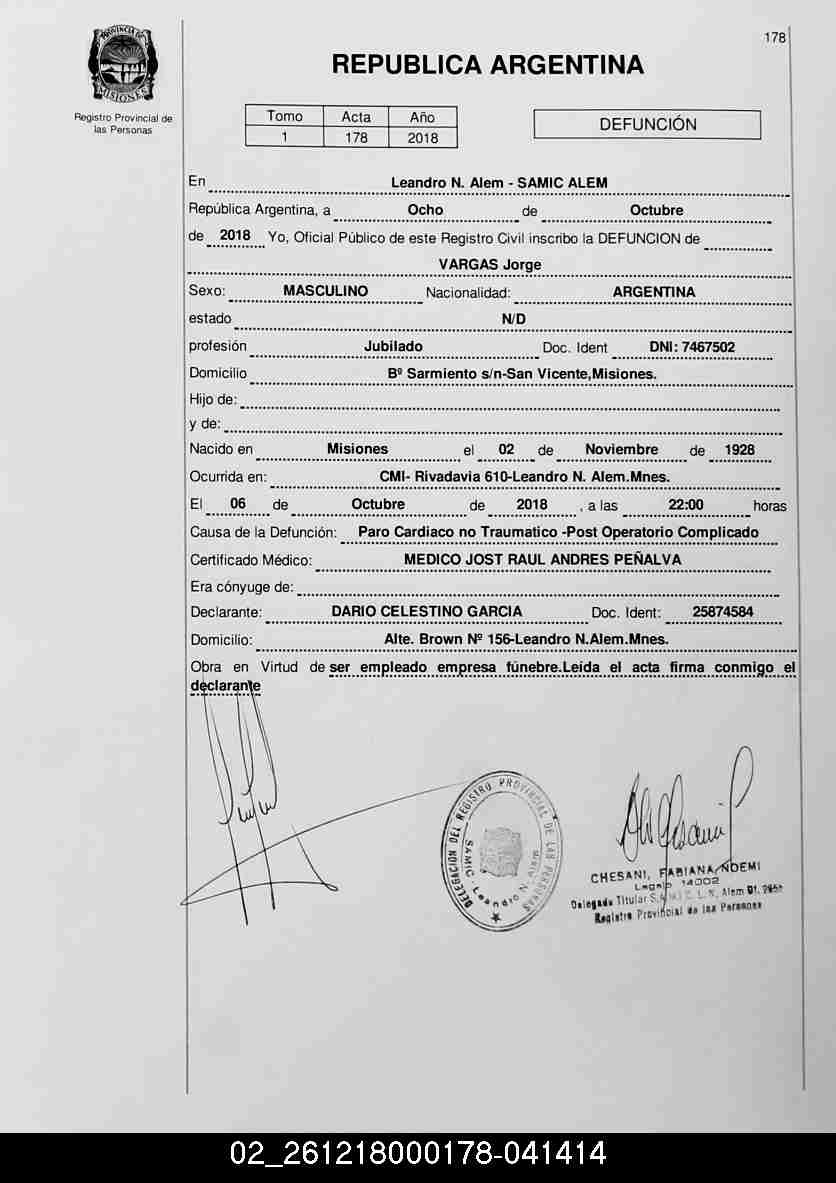 178
PROVINCIA DE
MISIONES
Registro Provincial de
las Personas
REPUBLICA ARGENTINA
Tomo Acta Año
1 178 2018
DEFUNCIÓN
En Leandro N. Alem - SAMIC ALEM
República Argentina, a Ocho de Octubre
de 2018 Yo, Oficial Público de este Registro Civil inscribo la DEFUNCION de
VARGAS Jorge
Sexo: MASCULINO Nacionalidad: ARGENTINA
estado N/D
profesión Jubilado Doc. Ident DNI: 7467502
Domicilio Bº Sarmiento s/n-San Vicente,Misiones.
Hijo de:
y de:
Nacido en Misiones el 02 de Noviembre de 1928
Ocurrida en: CMI- Rivadavia 610-Leandro N. Alem.Mnes.
El 06 de Octubre de 2018 , a las 22:00 horas
Causa de la Defunción: Paro Cardiaco no Traumatico -Post Operatorio Complicado
Certificado Médico: MEDICO JOST RAUL ANDRES PEÑALVA
Era cónyuge de:
Declarante: DARIO CELESTINO GARCIA Doc. Ident: 25874584
Domicilio: Alte. Brown Nº 156-Leandro N.Alem.Mnes.
Obra en Virtud de ser empleado empresa fúnebre.Leída el acta firma conmigo el
declarante
DELEGACION DEL REGISTRO PROVINCIAL DE LAS PERSONAS
SAMIC Leandro N. Alem
CHESANI, FABIANA NOEMI
Legajo 14002
Delegada Titular S.A.M.I.C. L. N. Alem
Registro Provincial de las Personas
02_261218000178-041414